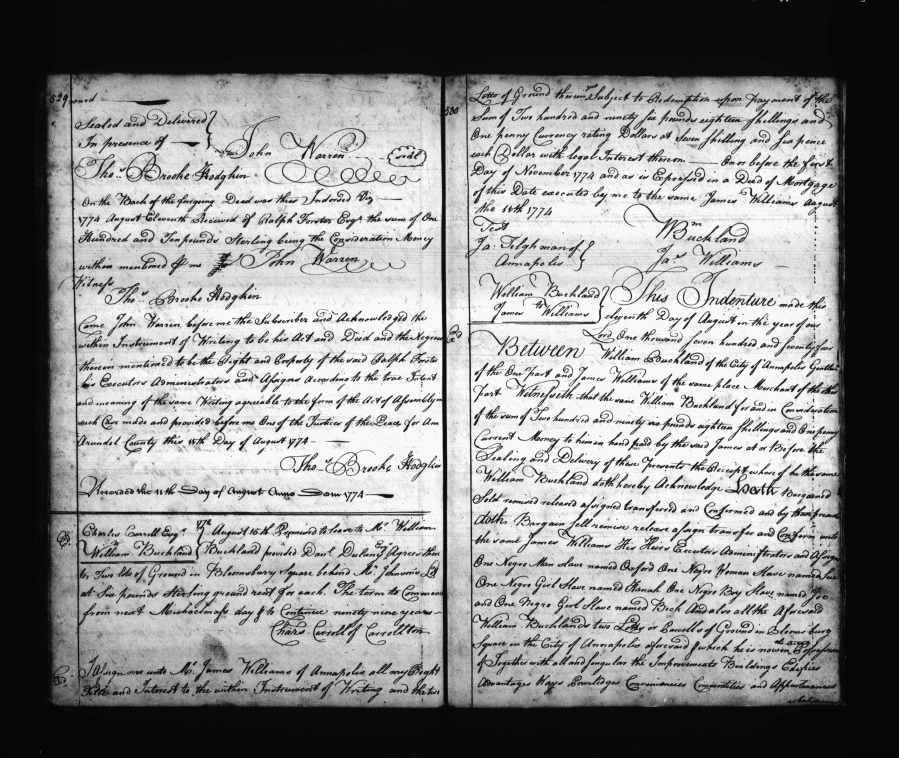 529
oned
Sealed and Delivered
In presence of
John Warren seal
Thos. Brooke Hodgkin
On the Back of the foregoing Deed was thus Indorsed Viz
1774 August Eleventh Received of Ralph Forster Esqr. the sum of One
Hundred and Ten pounds Sterling being the Consideration Money
within mentioned P me John Warren
Witness
Thos. Brooke Hodgkin
Came John Warren before me the Subscriber and Acknowledged the
within Instrument of Writing to be his Act and Deed and the Negroes
therein mentioned to be the Right and Property of the said Ralph Forster
his Executors Administrators and Assigns According to the true Intent
and meaning of the same Writing agreeable to the form of the Act of Assembly in
such Case made and provided before me One of the Justices of the Peace for Ann
Arundel County this 11th Day of August 1774
Thos. Brooke Hodgkin
Recorded the 11th Day of August Anno Dom 1774
Charles Carroll Esqr.
William Buckland
1772 August 15th Promised to leave to Mr. William
Buckland provided Danl. Dulany Esqr. Agrees then
to Two lots of Ground in Bloomsbury Square behind Mr. Johnson's Lot
at Six pounds Sterling ground rent for each. The Term to Commence
from next Michaelmass day & to Continue ninety nine years
Chars. Carroll of Carrollton
I Assign over unto Mr. James Williams of Annapolis all my Right
Title and Interest to the within Instrument of Writing and the two
530
Lotts of Ground therein Subject to Redemption upon payment of the
Sum of Two hundred and ninety six pounds eighteen Shillings and
One penny Currency rating Dollars at Seven Shilling and six pence
each Dollar with legal Interest thereon on or before the first
Day of November 1774 and as is Expressed in a Deed of Mortgage
of this Date executed by me to the same James Williams August
the 11th 1774
Test
Wm Buckland
Ja: Tilghman of
Annapolis
Jas Williams
William Buckland
to
James Williams
This Indenture made this
eleventh Day of August in the year of our
Lord One thousand seven hundred and seventy four
Between William Buckland of the City of Annapolis Gentleman
of the One part and James Williams of the same place Merchant of the other
part Witnesseth that the same William Buckland for and in Consideration
of the sum of Two hundred and ninety six pounds eighteen Shillings and One penny
Current Money to him in hand paid by the said James at or Before the
Sealing and Delivery of these Presents the Receipt whereof he the same
William Buckland doth hereby Acknowledge Hath Bargained
Sold remised released assigned transferred and Confirmed and by these presents
doth Bargain sell remise release assign transfer and Confirm unto
the same James Williams His Heirs Executors Administrators and Assigns
One Negro Man Slave named Oxford One Negro Woman Slave named Sue
One Negro Girl Slave named Hanah One Negro Boy Slave named
and One Negro Girl Slave named Beck And also all the Aforesaid
William Bucklands two Lotts or Parcells of Ground in Bloomsbury
Square in the City of Annapolis aforesaid which he is now in Possession
of Together with all and singular the Improvements Buildings Edifices
Advantages Ways Priviledges Conveniencies Commodities and Appurtenances
whatsoever